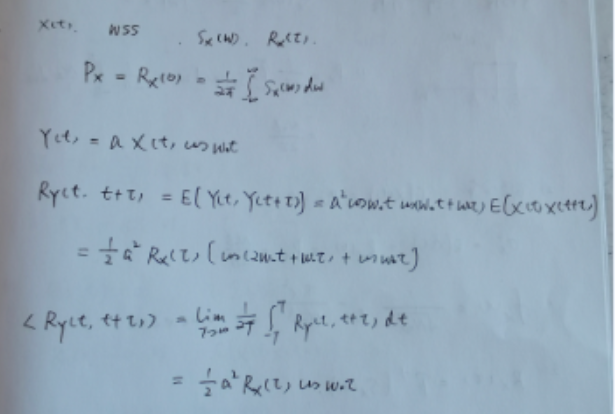 X(t). WSS . Sx(w). Rx(τ).
Px = Rx(0) = 1/2π ∫_{-∞}^{∞} Sx(w) dw
Y(t) = a X(t) cos w₀t
Ry(t. t+τ) = E[Y(t) Y(t+τ)] = a² cos w₀t cos(w₀t+w₀τ) E(X(t) X(t+τ)]
= 1/2 a² Rx(τ) [cos(2w₀t+w₀τ) + cos w₀τ]
< Ry(t, t+τ) > = lim_{T→∞} 1/2T ∫_{-T}^{T} Ry(t, t+τ) dt
= 1/2 a² Rx(τ) cos w₀τ